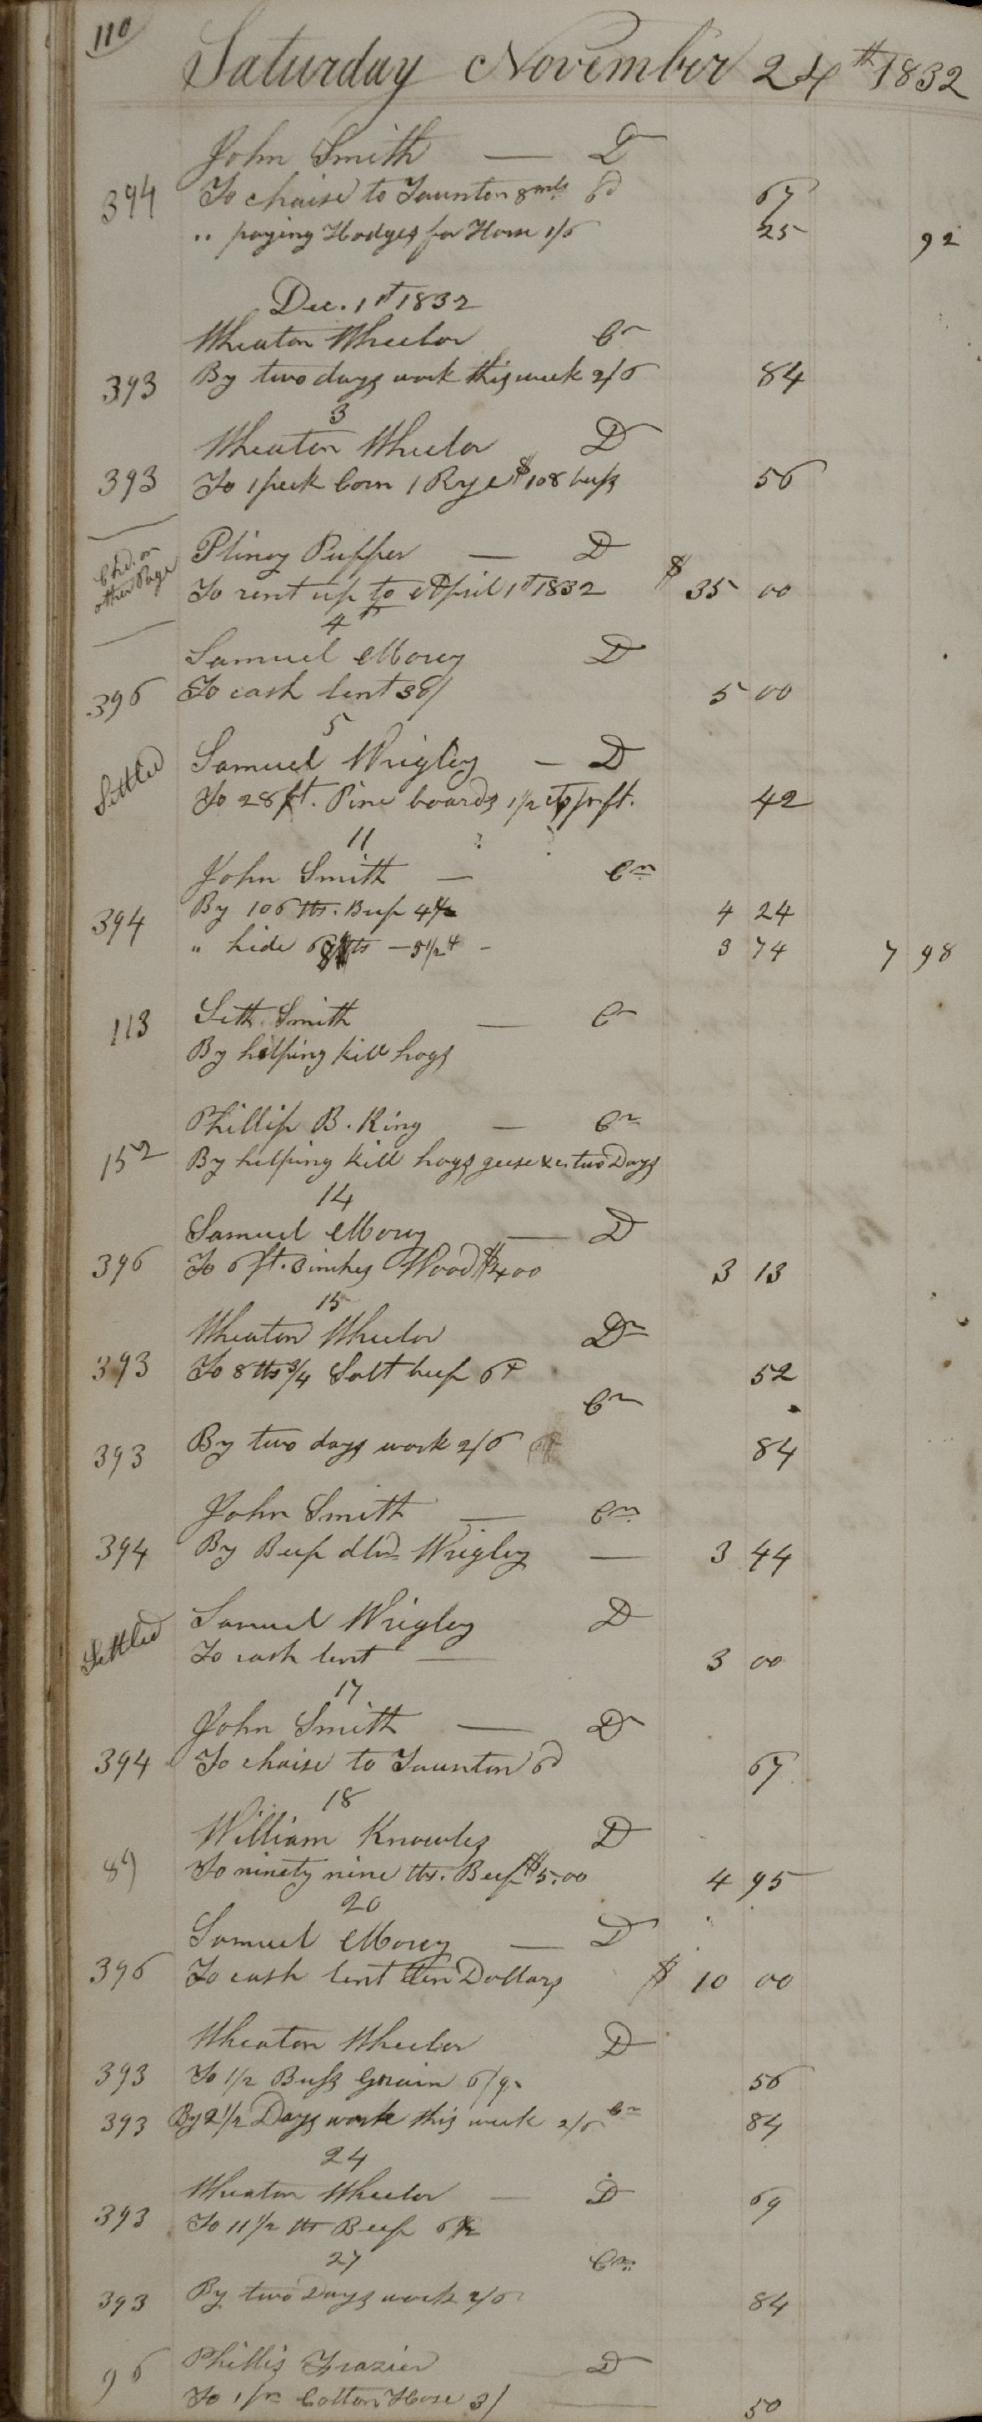 110
Saturday November 24th 1832
John Smith — D
394 To chaise to Taunton 8 mls 67
" paying Hodges for Horse 1/6 25 92
Dec. 1st 1832
Wheaton Wheelor Cr
393 By two days work this week 2/6 84
3
Wheaton Wheelor D
393 To 1 peck Corn 1 Rye $108 bush 56
Pliney Puffer — D
Chd. on other Page To rent up to April 1st 1832 $ 35 00
4th
Samuel Morey D
396 To cash lent 30/ 5 00
5
Settled Samuel Wrigley — D
To 28 ft. Pine boards 1 1/2 cts pr ft. 42
11
John Smith — Cr
394 By 106 lbs. Beef 4 4 24
" hide 68 lbs — 5 1/2 - 3 74 7 98
113 Seth Smith — Cr
By helping kill hogs
Phillip B. King — Cr
152 By helping kill hogs geese &c. two Days
14
Samuel Morey — D
396 To 6 ft. 3 inches Wood $4.00 3 13
15
Wheaton Wheelor Dr
393 To 8 lbs 3/4 Salt beef 6d 52
Cr
393 By two days work 2/6 84
John Smith — Cr
394 By Beef dld Wrigley — 3 44
Settled Samuel Wrigley D
To cash lent — 3 00
17
John Smith — D
394 To chaise to Taunton 67
18
William Knowles D
89 To ninety nine lbs. Beef $5.00 4 95
20
Samuel Morey — D
396 To cash lent ten Dollars $ 10 00
Wheaton Wheelor D
393 To 1/2 Bush Grain 6/9 56
393 By 2 1/2 Days work this week 2/6 Cr 84
24
Wheaton Wheelor — D 69
393 To 11 1/2 lbs Beef 6
27 Cr
393 By two Days work 2/6 84
96 Phillis Frazier D
To 1 pr Cotton Hose 3/ — 50